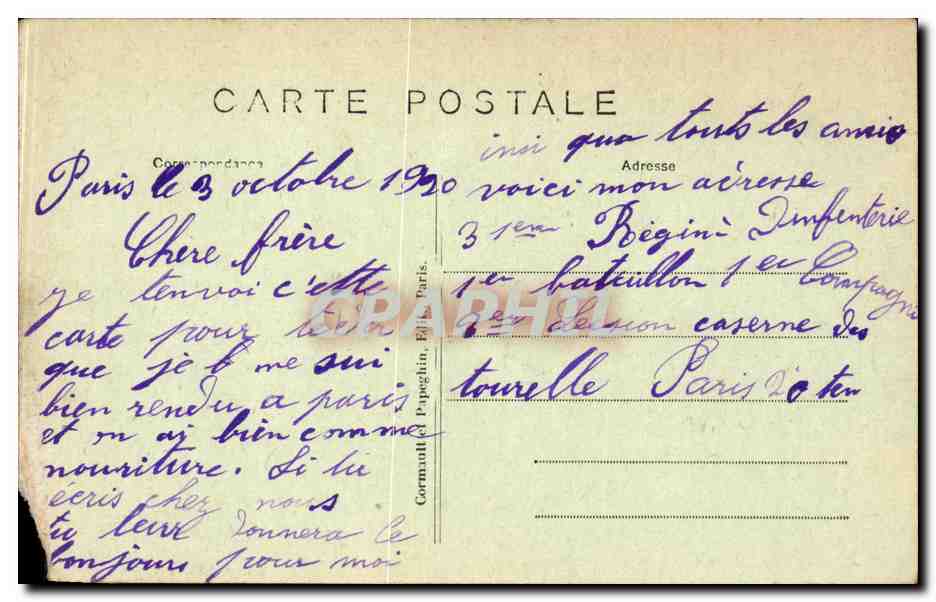 CARTE POSTALE
Correspondance
Paris le 3 octobre 1920
Chere frère
je tenvoi c'ette
carte pour te dir
que je me sui
bien rendu a paris
et on aj bien comme
nouriture. Si tu
écris chez nous
tu leur donnera le
bonjours pour moi
Cormault et Papeghin, Edit. Paris.
insi que touts les amis
Adresse
voici mon adresse
3 ieme Régim Infenterie
1er bataillon 1er Compagne
caserne des
tourelle Paris 20 tem
CPAPHIL